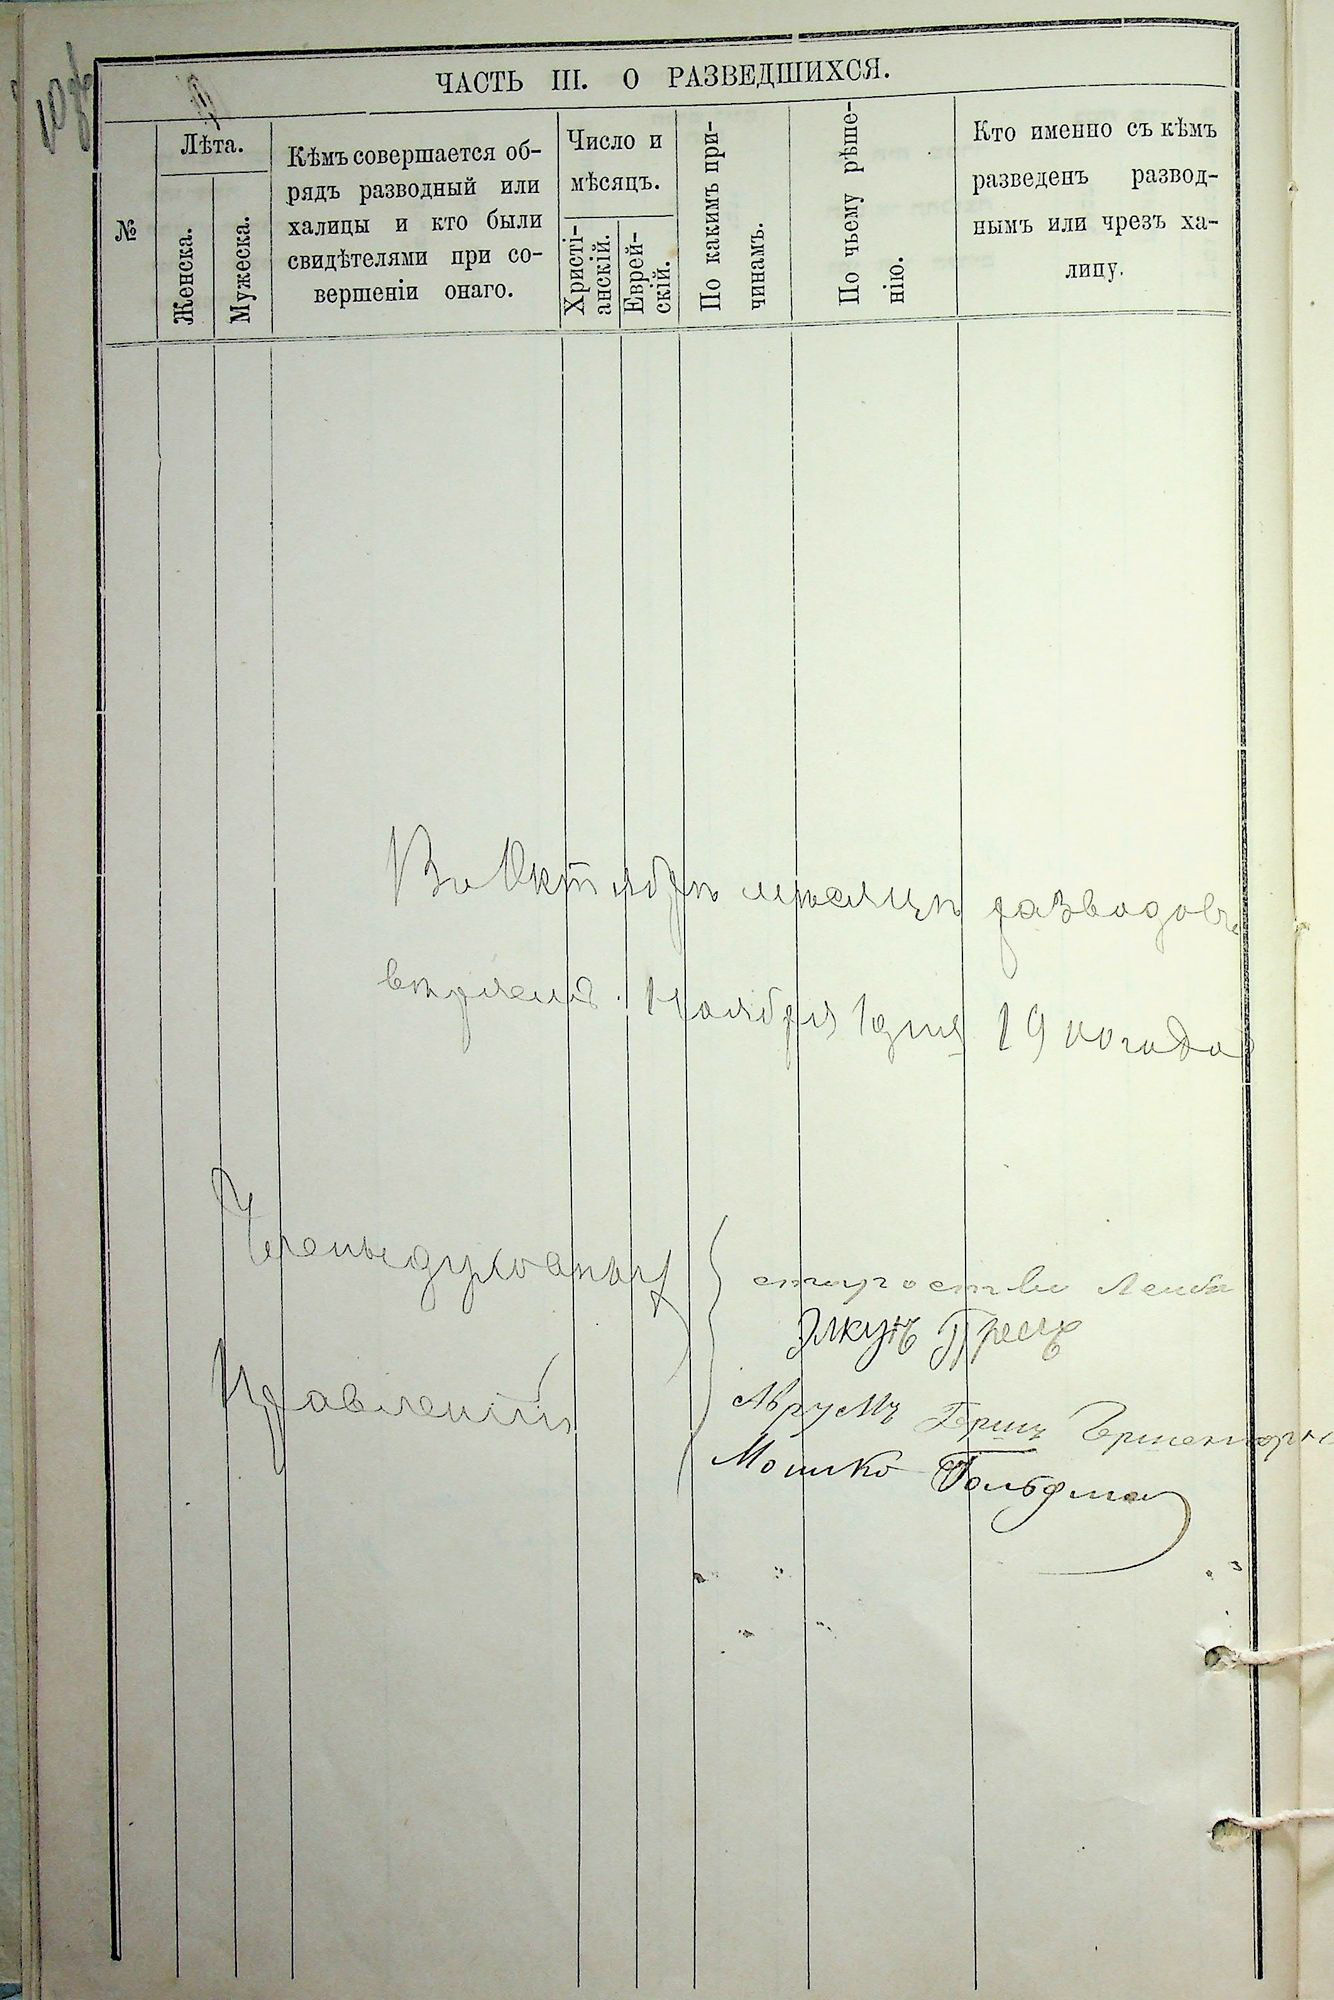 ЧАСТЬ III. О РАЗВЕДШИХСЯ.
№
Лѣта.
Женска.
Мужеска.
Кѣмъ совершается об-
рядъ разводный или
халицы и кто были
свидѣтелями при со-
вершеніи онаго.
Число и
мѣсяцъ.
Христі-
анскій.
Еврей-
скій.
По какимъ при-
чинамъ.
По чьему рѣше-
нію.
Кто именно съ кѣмъ
разведенъ развод-
нымъ или чрезъ ха-
лицу.
Въ Октябрѣ мѣсяцѣ разводовъ
Ноября 1 дня 19 00 года
Члены духовныхъ
Правленій
староства Лейба
Элкунъ
Аврумъ Гершъ
Мошко Гольдман